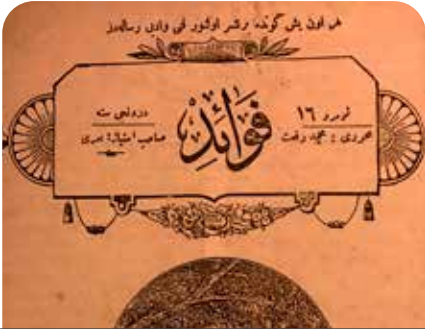 هر اون بش كونده بر نشر اولنور فنی وادبی رساله‌در
نومرو ١٦
محرری : محمد رفعت
فَوَائِدْ
دردنجی سنه
صاحب امتیاز :